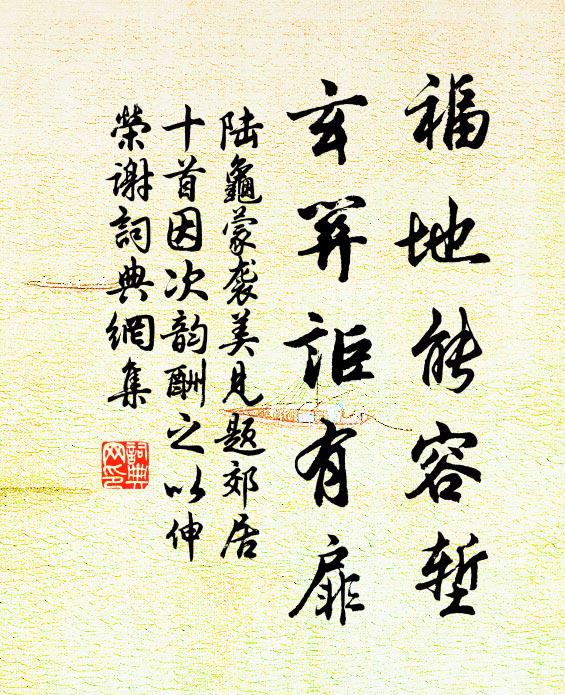 福地能容塹
玄關詎有扉
陸龜蒙袭美見題郊居
十首因次韵酬之以伸
榮謝詞典網集
詞典
网印